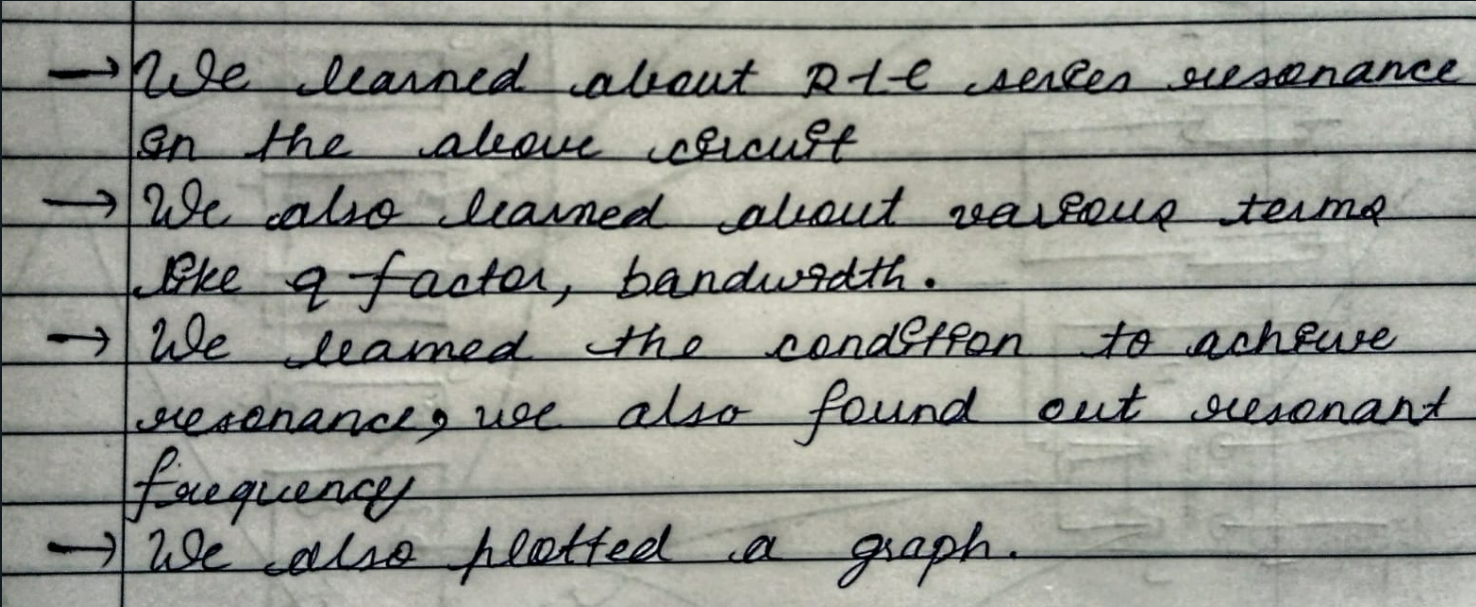 → We learned about R-L-C series resonance
in the above circuit
→ We also learned about various terms
like q-factor, bandwidth.
→ We learned the condition to achieve
resonance, we also found out resonant
frequency
→ We also plotted a graph.